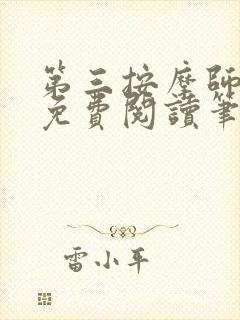 第三按摩師
免費閱讀筆
雷小平